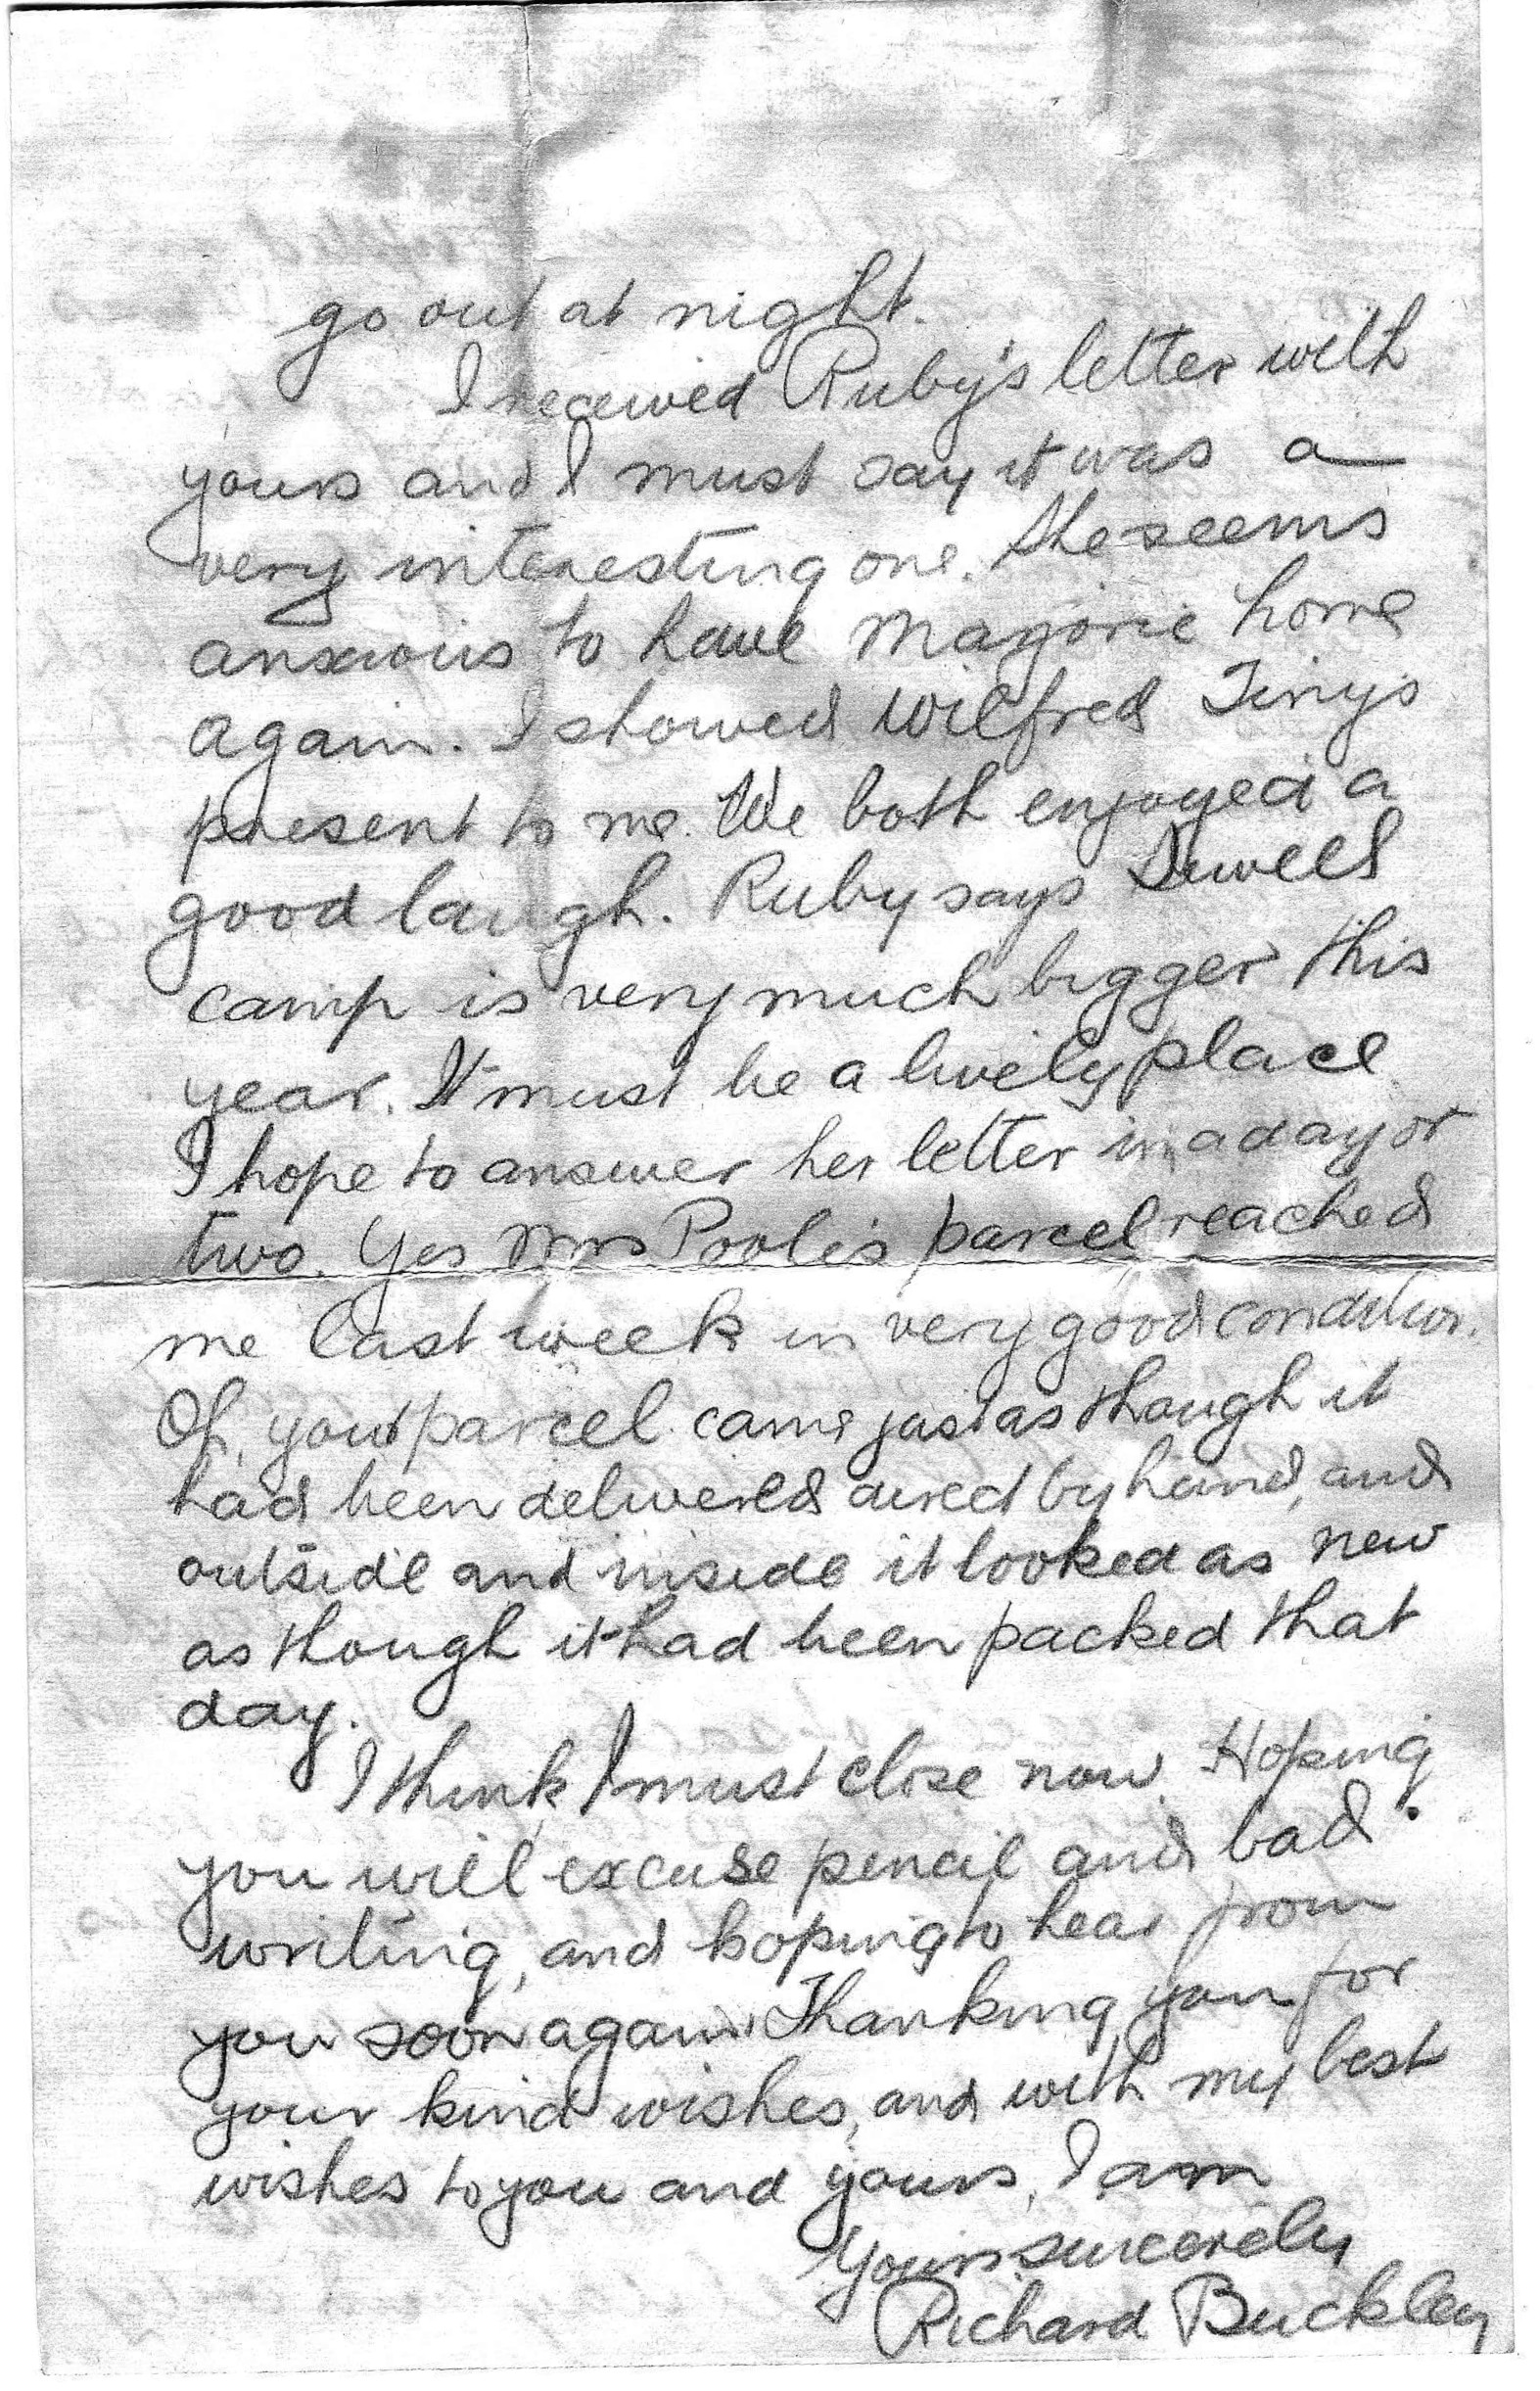 go out at night.
I received Ruby's letter with
yours and I must say it was a
very interesting one. She seems
anxious to have Marjorie home
again. I showed Wilfred Tiny's
present to me. We both enjoyed a
good laugh. Ruby says Sewell
camp is very much bigger this
year. It must be a lively place.
I hope to answer her letter in a day or
two. Yes Mrs Poole's parcel reached
me last week in very good condition.
Oh, your parcel came just as though it
had been delivered direct by hand, and
outside and inside it looked as new
as though it had been packed that
day.
I think I must close now. Hoping
you will excuse pencil and bad
writing, and hoping to hear from
you soon again. Thanking you for
your kind wishes, and with my best
wishes to you and yours, I am
Yours sincerely
Richard Buckley